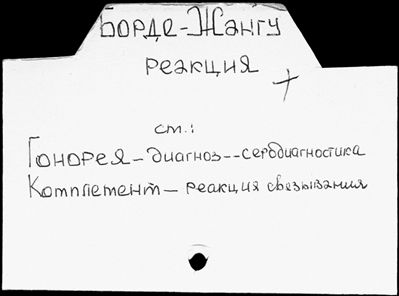 Борде-Жангу
реакция
см.:
Гонорея-диагноз--серодиагностика
Комплемент-реакция связывания